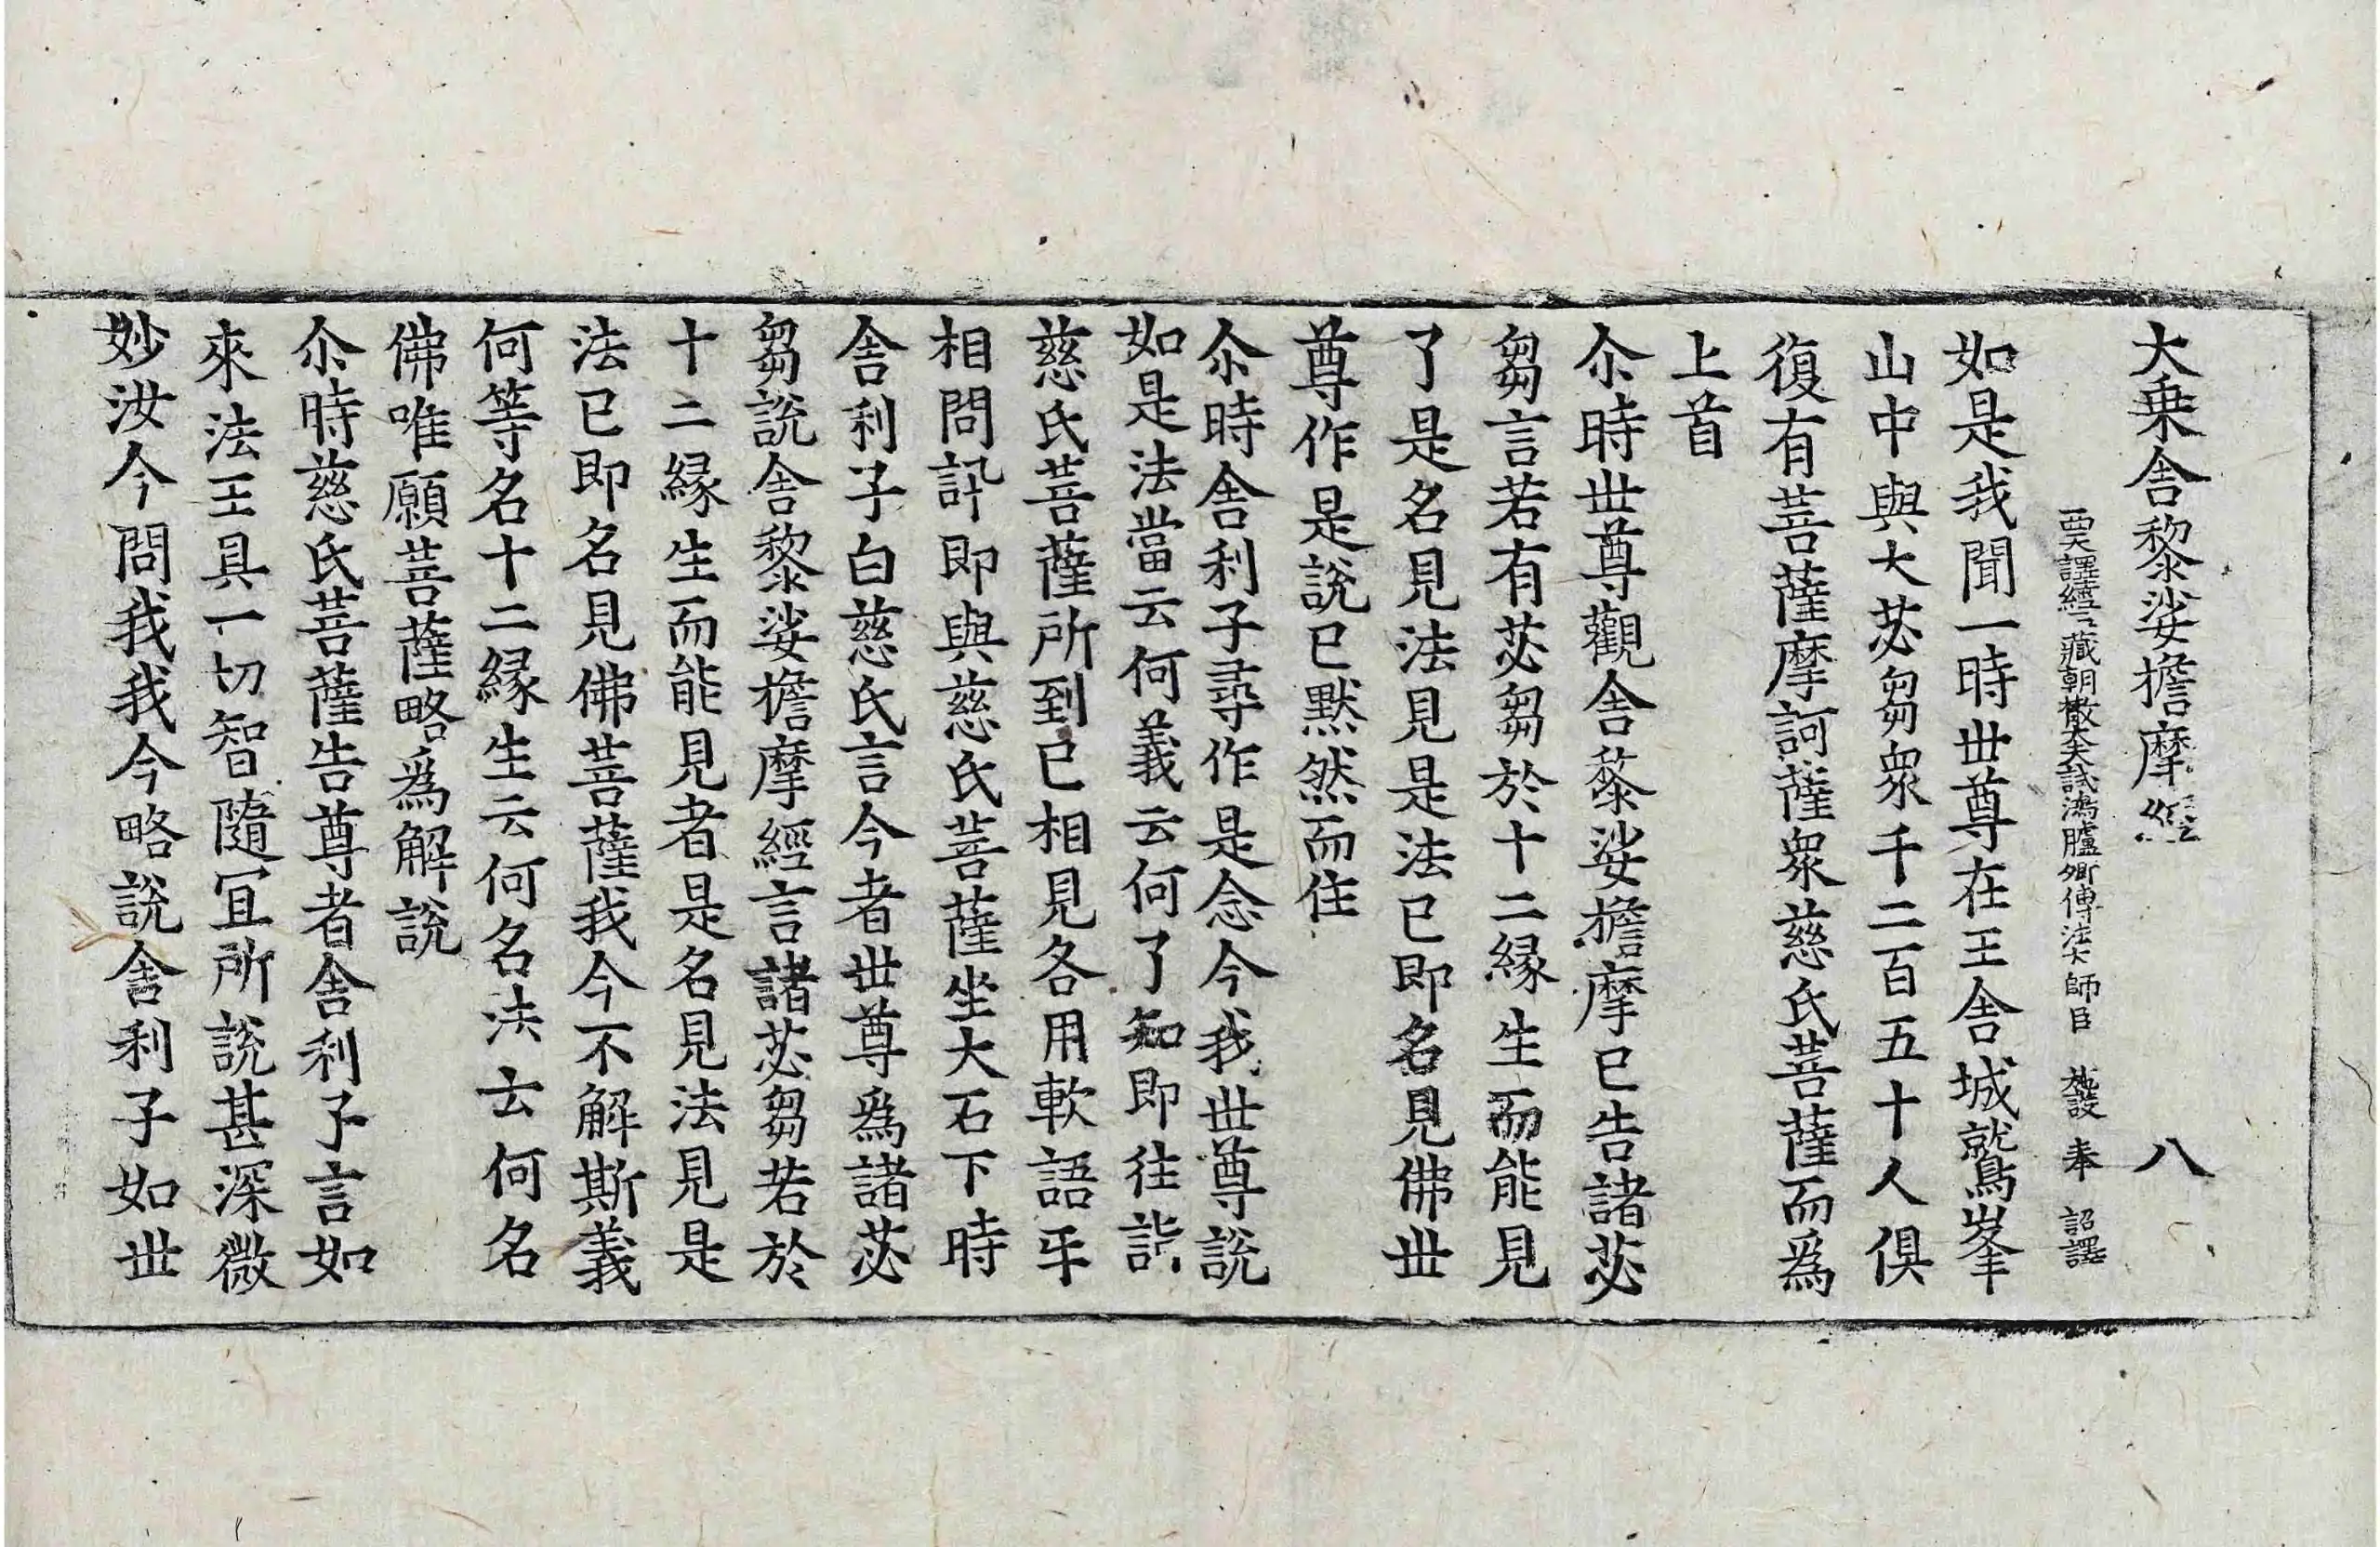 大乗舎黎娑擔摩經 八
西天譯經三藏朝散大夫試鴻臚卿傳法大師臣 施護 奉 詔譯
如是我聞一時丗尊在王舎城鷲峯
山中與大苾芻衆千二百五十人俱
復有菩薩摩訶薩衆慈氏菩薩而爲
上首
尒時丗尊觀舎黎娑擔摩已告諸苾
芻言若有苾芻於十二縁生而能見
了是名見法見是法已即名見佛丗
尊作是說已默然而住
尒時舎利子尋作是念今我丗尊說
如是法當云何義云何了知即往詣
慈氏菩薩所到已相見各用軟語㸦
相問訊即與慈氏菩薩坐大石下時
舎利子白慈氏言今者丗尊爲諸苾
芻說舎黎娑擔摩經言諸苾芻若於
十二縁生而能見者是名見法見是
法已即名見佛菩薩我今不解斯義
何等名十二縁生云何名法云何名
佛唯願菩薩略爲解說
尒時慈氏菩薩告尊者舎利子言如
來法王具一切智隨冝所說甚深微
妙汝今問我我今略說舎利子如丗